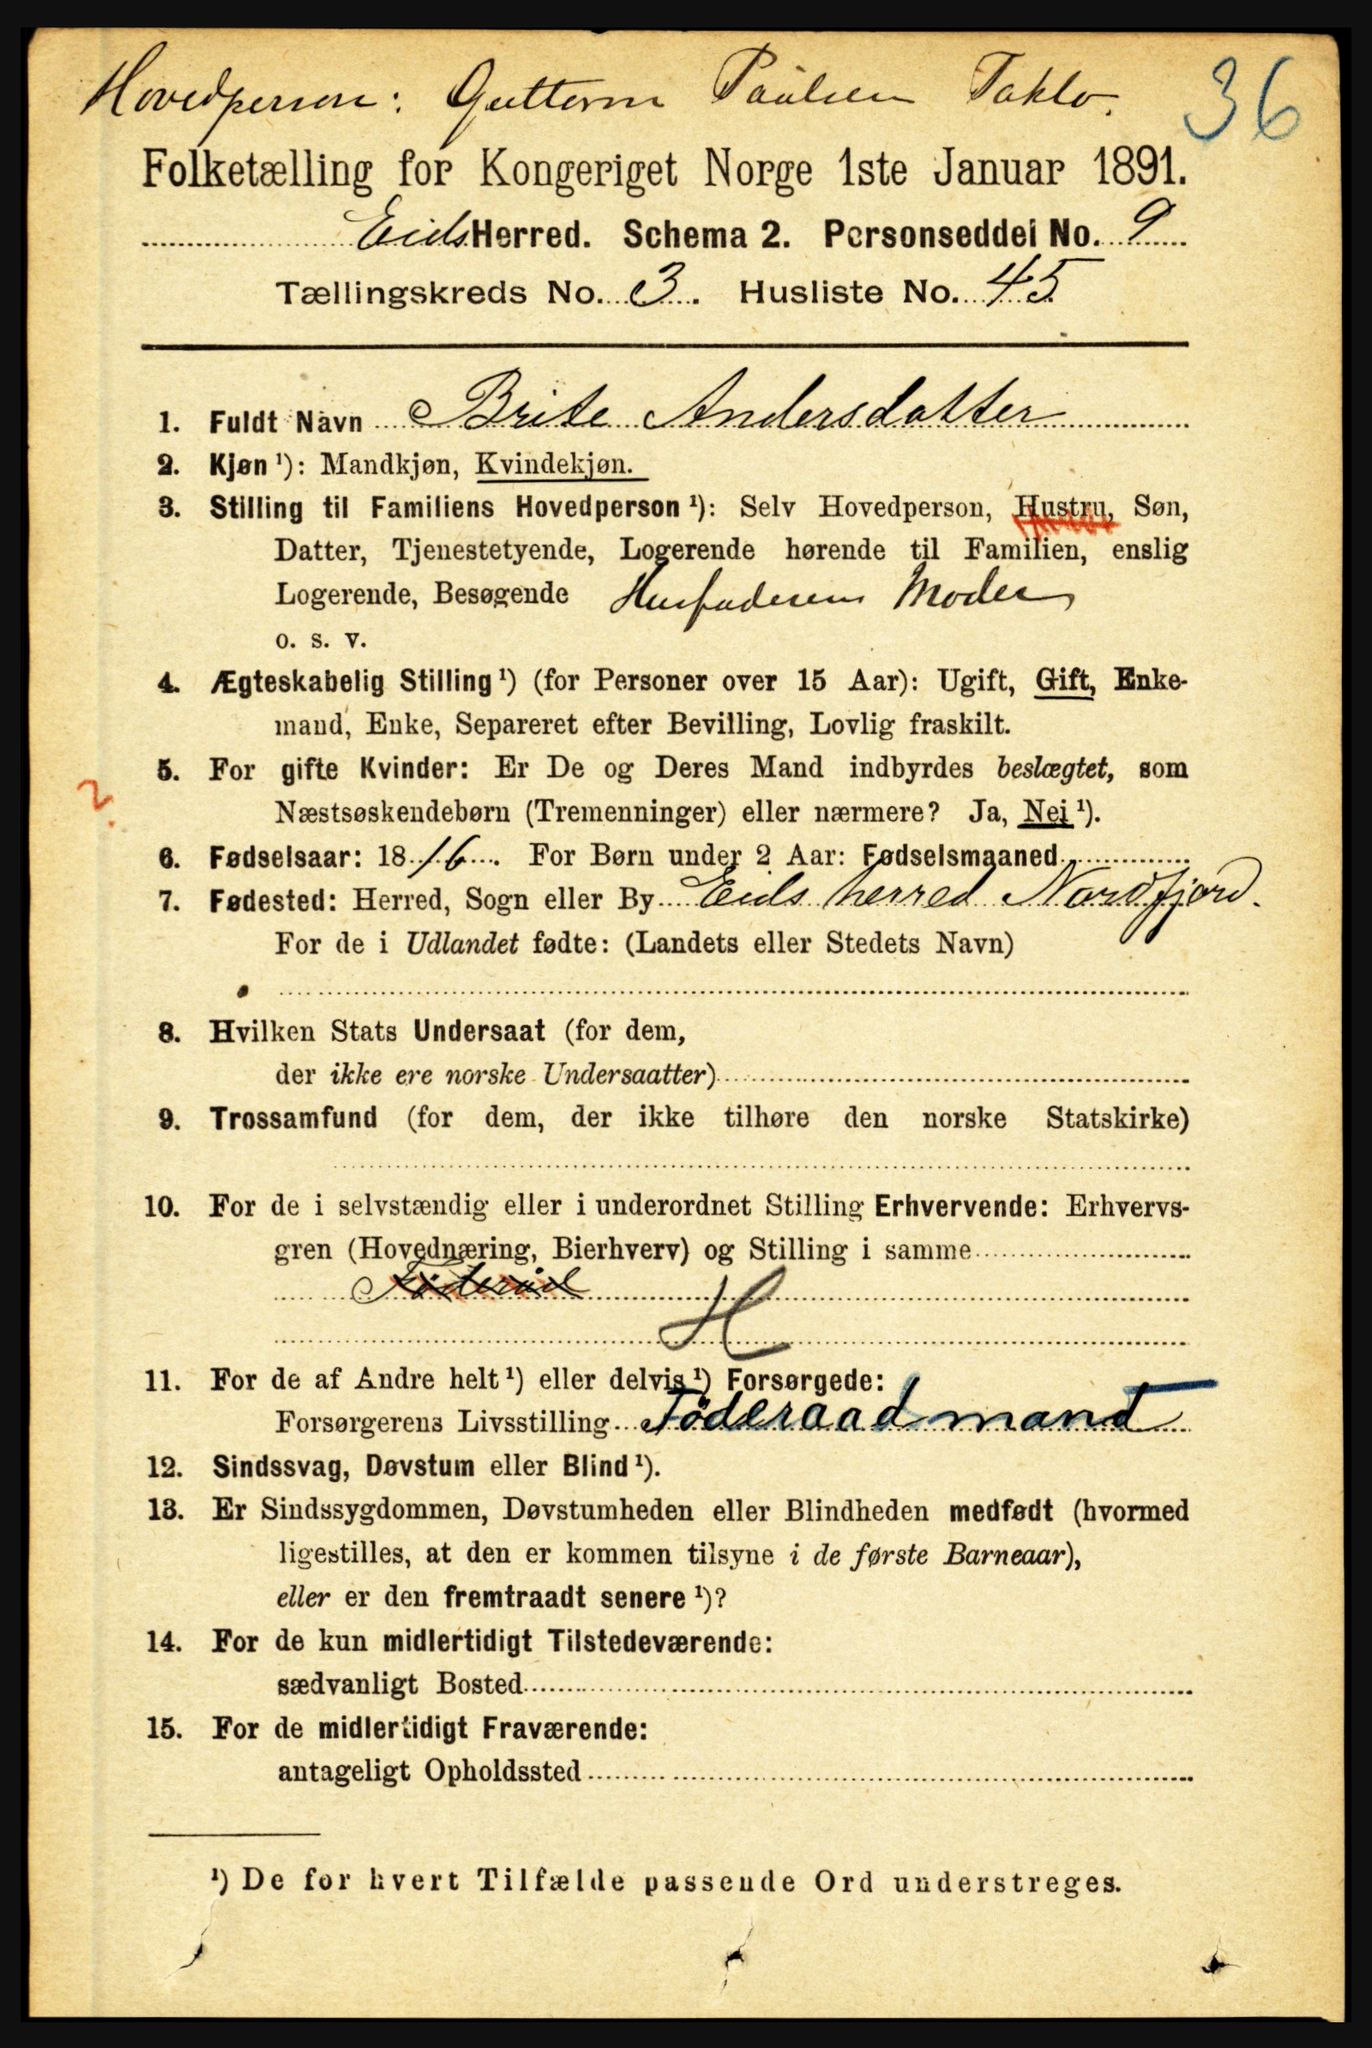 Hovedperson: Guttorm Paulsen Taklo.
36
Folketælling for Kongeriget Norge 1ste Januar 1891.
Eids Herred. Schema 2. Personseddel No. 9
Tællingskreds No. 3. Husliste No. 45
1. Fuldt Navn Brite Andersdatter
2. Kjøn ¹): Mandkjøn, Kvindekjøn.
3. Stilling til Familiens Hovedperson ¹): Selv Hovedperson, Hustru, Søn,
Datter, Tjenestetyende, Logerende hørende til Familien, enslig
Logerende, Besøgende Husfaderens Moder
o. s. v.
4. Ægteskabelig Stilling ¹) (for Personer over 15 Aar): Ugift, Gift, Enke-
mand, Enke, Separeret efter Bevilling, Lovlig fraskilt.
5. For gifte Kvinder: Er De og Deres Mand indbyrdes beslægtet, som
?
Næstsøskendebørn (Tremenninger) eller nærmere? Ja, Nei ¹).
6. Fødselsaar: 1816. For Børn under 2 Aar: Fødselsmaaned
7. Fødested: Herred, Sogn eller By Eids herred Nordfjord.
For de i Udlandet fødte: (Landets eller Stedets Navn)
8. Hvilken Stats Undersaat (for dem,
der ikke ere norske Undersaatter)
9. Trossamfund (for dem, der ikke tilhøre den norske Statskirke)
10. For de i selvstændig eller i underordnet Stilling Erhvervende: Erhvervs-
gren (Hovednæring, Bierhverv) og Stilling i samme
Föderåd
H
11. For de af Andre helt ¹) eller delvis ¹) Forsørgede:
Forsørgerens Livsstilling Föderaadmand
12. Sindssvag, Døvstum eller Blind ¹).
13. Er Sindssygdommen, Døvstumheden eller Blindheden medfødt (hvormed
ligestilles, at den er kommen tilsyne i de første Barneaar),
eller er den fremtraadt senere ¹)?
14. For de kun midlertidigt Tilstedeværende:
sædvanligt Bosted
15. For de midlertidigt Fraværende:
antageligt Opholdssted
¹) De for hvert Tilfælde passende Ord understreges.